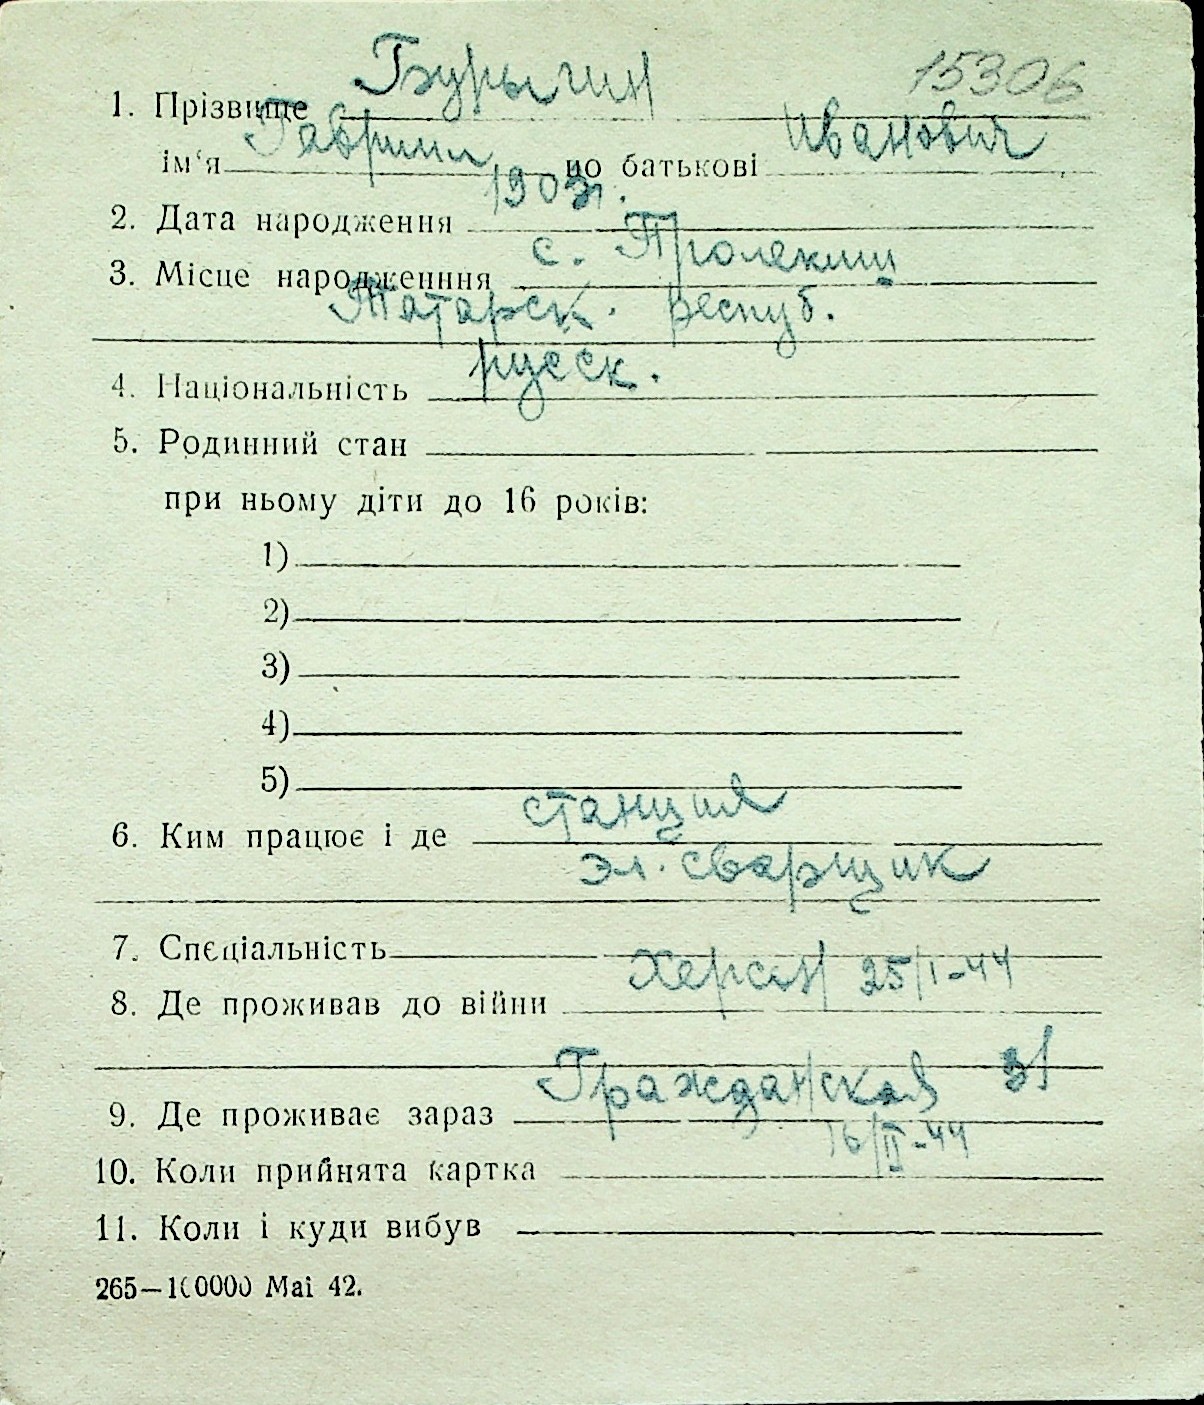 15306
1. Прізвище Бурыгин
ім'я Гавриил по батькові Иванович
2. Дата народження 1903г.
3. Місце народженння с.
Татарск. респуб.
4. Національність русск.
5. Родинний стан
при ньому діти до 16 років:
1)
2)
3)
4)
5)
6. Ким працює і де станция
эл. сварщик
7. Спеціальність
8. Де проживав до війни Херсон 25/I-44
9. Де проживає зараз Гражданская 31
10. Коли прийнята картка 16/II-44
11. Коли і куди вибув
265—100000 Маі 42.